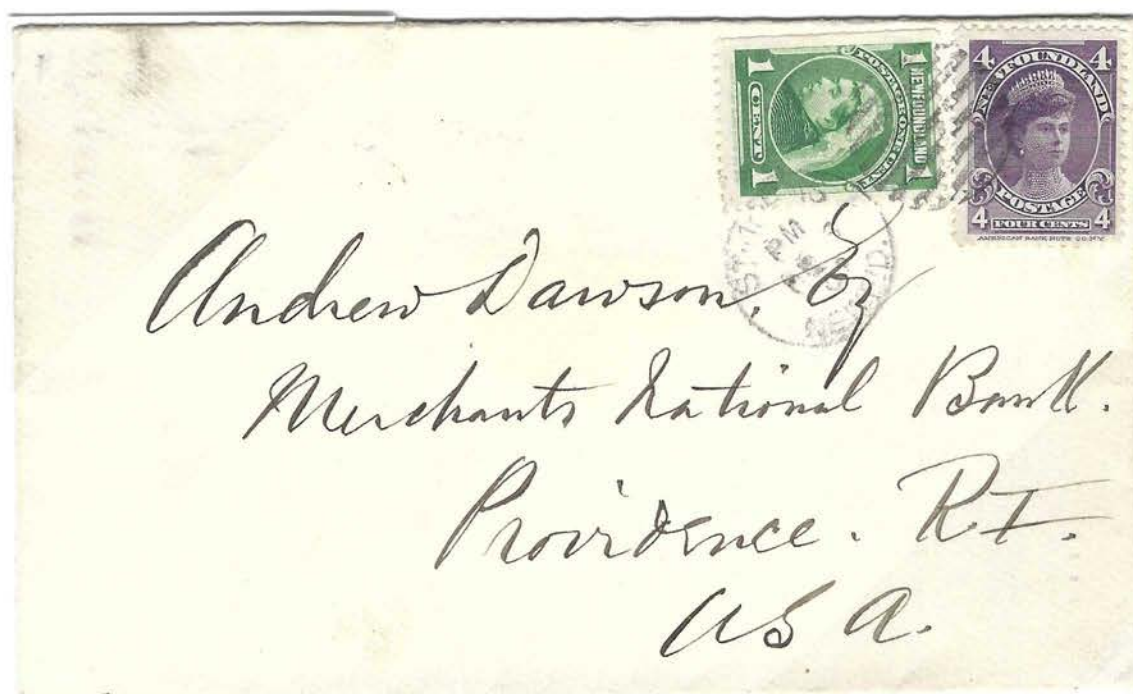 1 NEWFOUNDLAND 1
POSTAGE ONE CENT
1 CENT 1
4 4
NEWFOUNDLAND
POSTAGE
4 FOUR CENTS 4
AMERICAN BANK NOTE CO. N.Y.
PM
Andrew Dawson, Esq
Merchants National Bank.
Providence. R.I.
USA.